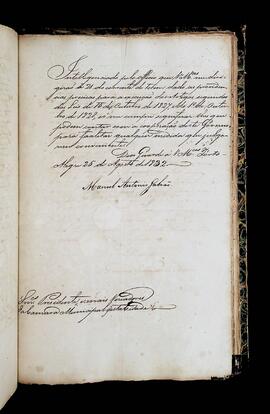 Intelligenciado pelo officio que V.Mces me diri-
girão a 21 do corrente de terem dado as providen-
cias precisas para a execução dos artigos segundos
das Leis de 15 de Outubro de 1827, e do 1º de Outu-
bro de 1828, só me cumpre significar-lhes que
podem contar com a cooperação deste Governo,
para facilitar qualquer medida que julga-
rem conveniente.
Deos Guarde a V.Mces Porto
Alegre 25 de Agosto de 1832
Manoel Antonio Galvão
Snres Presidente, e mais Vereadores
da Camara Municipal desta Cidade